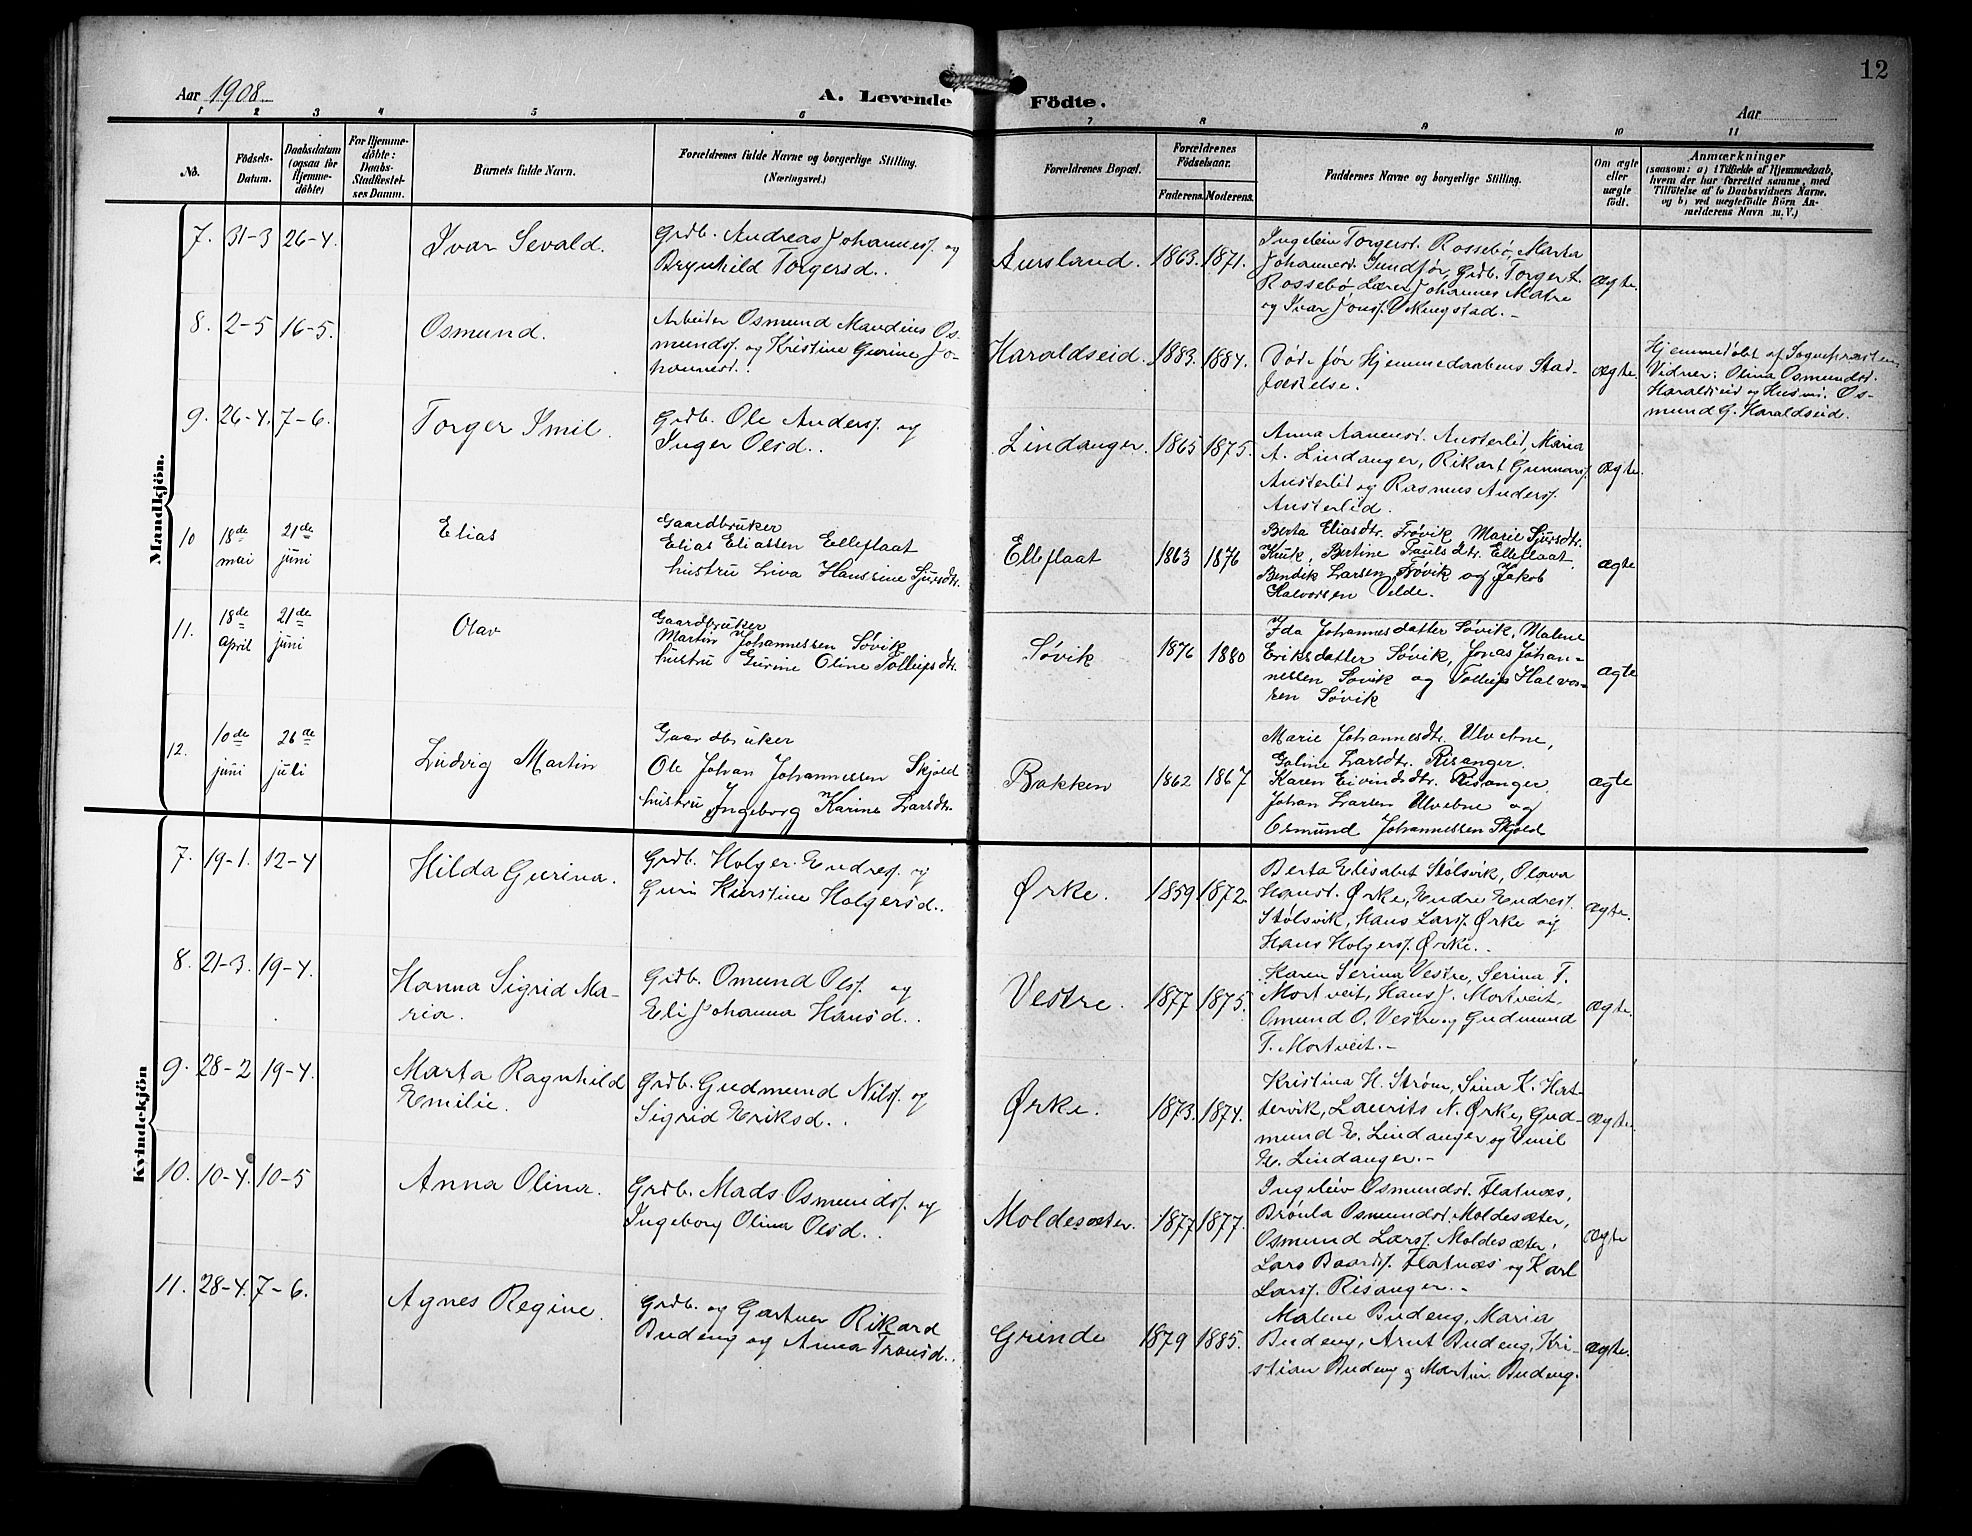 12
Aar 1908.
A. Levende Födte.
Aar
1 2 3 4 5 6 7 8 9 10 11
No.
Födsels-
Datum.
Daabsdatum
(ogsaa for
Hjemme-
döbte)
For Hjemme-
döbte:
Daabs-
Stadfestel-
ses Datum.
Barnets fulde Navn.
Forældrenes fulde Navne og borgerlige Stilling.
(Næringsvei.)
Forældrenes Bopæl.
Forældrenes
Födselsaar.
Faderens. Moderens.
Faddernes Navne og borgerlige Stilling.
Om ægte
eller
uægte
födt.
Anmærkninger
(saasom: a) i Tilfælde af Hjemmedaab,
hvem der har forrettet samme, med
Tilföielse af to Daabsvidners Navne.
og b) ved uægtefödte Börn An-
melderens Navn m. V.)
Mandkjön.
7. 31-3 26-4.
Ivar Sevald.
Grdb. Andreas Johannesf. og
Brynhild Torgersd..
Aursland. 1863. 1871.
Ingeleiv Torgersd. Rossebø, Marta
Johannesd. Sundfør, Grdb. Torger A.
Rossebø Lærer Johannes Matre
og Ivar Jonsf. Økingstad.-
ægte.
8. 2-5 16-5.
Osmund.
Arbeider Osmund Maudius Os-
mundsf. og Kristine Gurine Jo-
hannesd..
Haraldseid. 1883. 1884.
Død før Hjemmedaabens Stad-
fæstelse.
ægte.
Hjemmedøbt af Sognepræsten
Vidner: Olina Osmundsd.
Haraldseid og Husm. Os-
mund G. Haraldseid.
9. 26-4. 7-6.
Torger Imil.
Grdb. Ole Andersf. og
Inger Olsd..
Lindanger. 1865 1875.
Anna Aanensd. Austerlid, Maria
A. Lindanger, Rikart Gunnarsf.
Austerlid og Rasmus Andersf.
Austerlid.
ægte.
10 18de mai 21de juni
Elias
Gaardbruker
Elias Eliassen Elleflaat
hustru Liva Hanssine Sjursdtr.
Elleflaat 1863 1876
Berta Eliasdtr. Frøvik Marie Sjursdtr.
Kruk, Bertine Paulsdtr. Elleflaat,
Bendik Larsen Frøvik og Jakob
Halvorsen Velde.
ægte
11. 18de april 21de juni
Olav
Gaardbruker
Martin Johannessen Søvik
hustru Gurine Oline Tollefsdtr.
Søvik 1876 1880
Ida Johannesdatter Søvik, Malene
Eriksdatter Søvik, Jonas Johan-
nessen Søvik og Tollefs Halvor-
sen Søvik
ægte
12. 10de juni 26de juli
Ludvig Martin
Gaardbruker
Ole Johan Johannessen Skjold
hustru Ingeborg Karine Larsdtr.
Bakken 1862 1867
Marie Johannesdtr. Ulvebne,
Goline Larsdtr. Risanger.
Karen Eivindsdtr. Risanger
Johan Larsen Ulvebne og
Osmund Johannessen Skjold
ægte
Kvindekjön
7. 19-1. 12-4
Hilda Gurina.
Grdb. Holger Endresf. og
Guri Kirstine Holgersd..
Ørke. 1859 1872.
Berta Elisabet Stølsvik, Olava
Hansd. Ørke, Endre Endresf.
Stølsvik, Hans Larsf. Ørke og
Hans Holgersf. Ørke.-
ægte.
8. 21-3. 19-4.
Hanna Sigrid Ma-
ria.
Grdb. Omund Olsf. og
Eli Johanna Hansd..
Vestre. 1877 1875.
Karen Serina Vestre, Serina T.
Mortveit, Hans J. Mortveit.
Omund O. Vestre og Gudmund
T. Mortveit.-
ægte.
9. 28-2 19-4.
Marta Ragnhild
Emilie.
Grdb. Gudmund Nilsf. og
Sigrid Eriksd..
Ørke. 1873. 1874.
Kristina H. Strøm, Sina K. Hat-
tervik, Laurits N. Ørke, Gud-
mund E. Lindanger og Emil
E. Lindanger.-
ægte.
10. 10-4. 10-5
Anna Olina.
Grdb. Mads Osmundsf. og
Ingeborg Olina Olsd..
Moldesæter. 1877 1877.
Ingeleiv Osmundsd. Flatnæs,
Brønla Osmundsd. Moldesæter,
Osmund Larsf. Moldesæter,
Lars Baardsf. Flatnæs og Karl
Larsf. Risanger.-
ægte
11. 28-4. 7-6.
Agnes Regine.
Grdb. og Gartner Rikard
Budeng og Anna Tronsd..
Grinde 1879 1885.
Malene Budeng, Maria
Budeng, Arnt Budeng, Kri-
stian Budeng og Martin Budeng.
ægte.